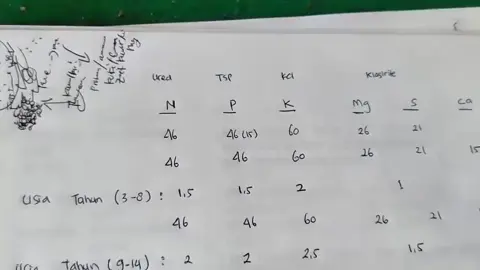 Urea TSP KCl Kieserite
N P K Mg S Ca
46 46 (15) 60 26 21
46 46 60 26 21 15
Usia Tahun (3-8) : 1,5 1,5 2 1
46 46 60 26 21
Usia Tahun (9-14) : 2 2 2,5 1,5